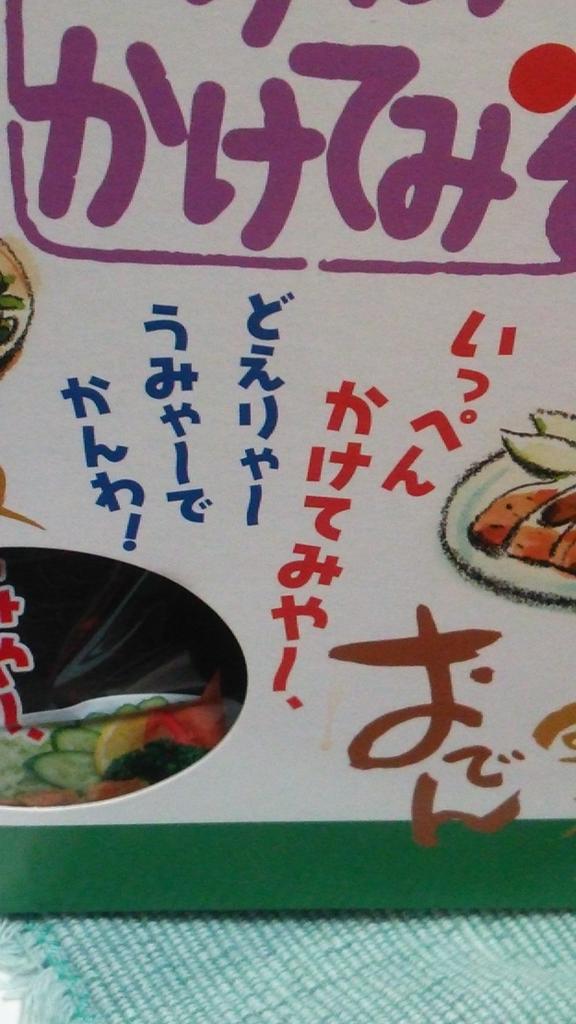 かけてみそ
いっぺん
かけてみやー、
どえりゃー
うみゃーで
かんわ!
おでん
みやー、